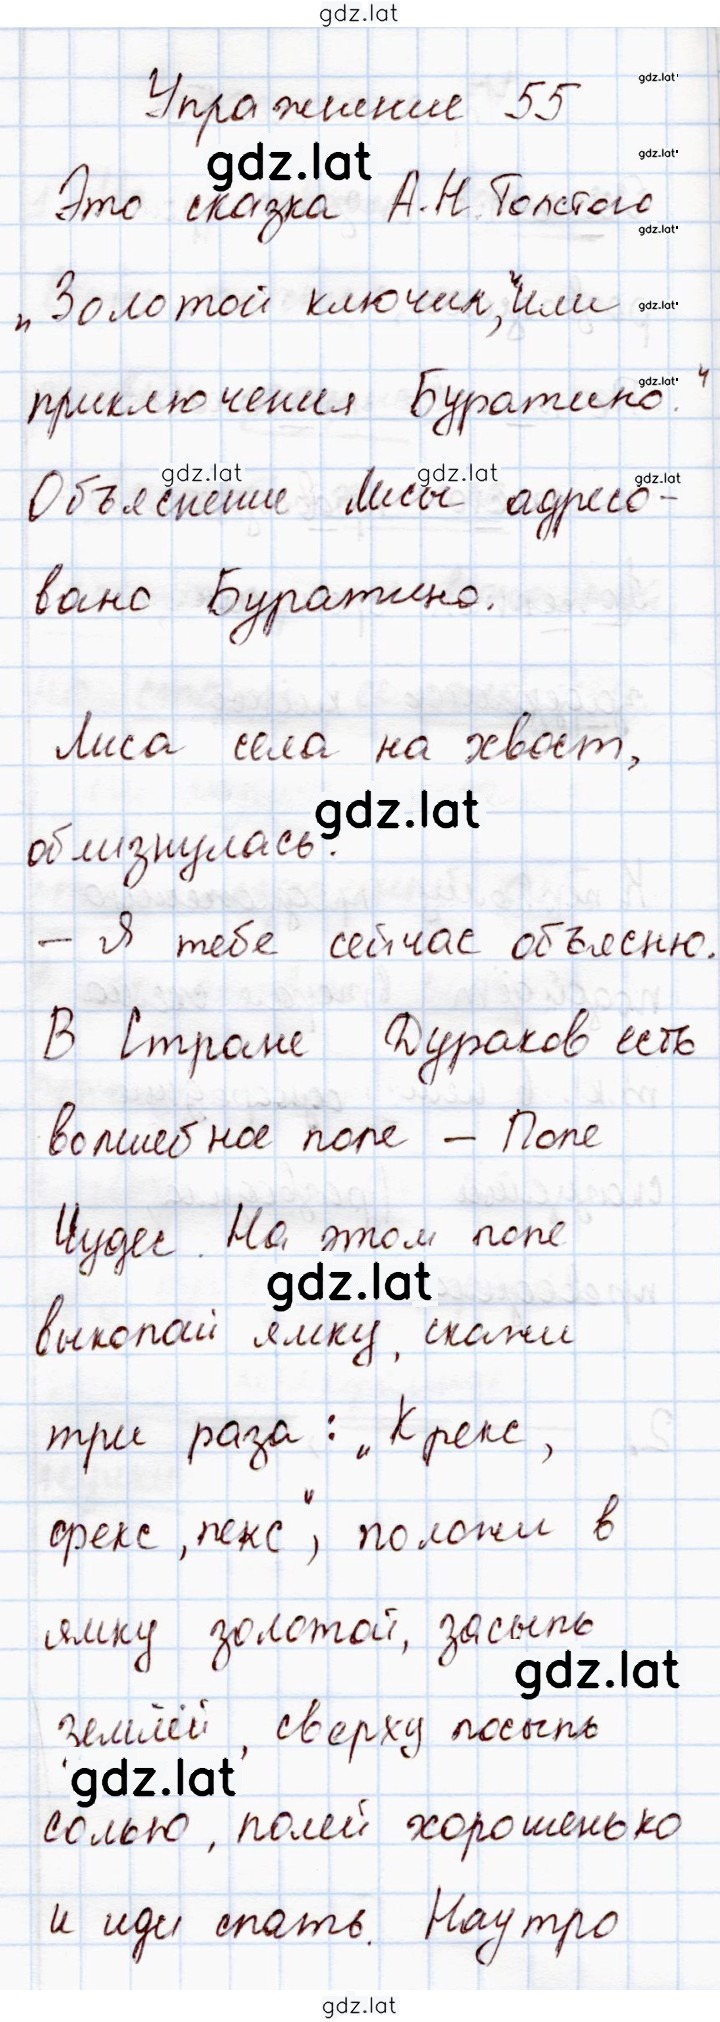 gdz.lat
Упражнение 55
gdz.lat
gdz.lat
gdz.lat
Это сказка А.Н.Толстого
gdz.lat
„Золотой ключик," или
gdz.lat
gdz.lat
приключения Буратино."
gdz.lat gdz.lat gdz.lat
Объяснение Лисы адресо-
вано Буратино.
Лиса села на хвост,
gdz.lat
облизнулась.
– Я тебе сейчас объясню.
В Стране Дураков есть
волшебное поле – Поле
Чудес. На этом поле
gdz.lat
выкопай ямку, скажи
три раза: „Крекс,
фекс, пекс", положи в
ямку золотой, засыпь
gdz.lat
землёй, сверху посыпь
gdz.lat
солью, полей хорошенько
и иди спать. Наутро
gdz.lat